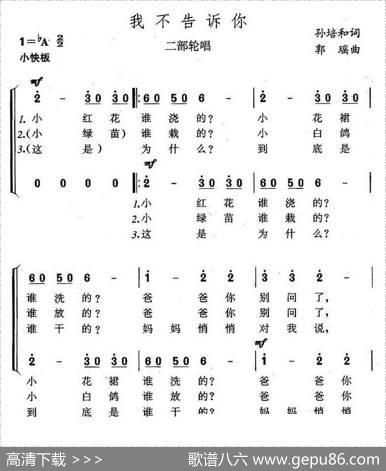 我不告诉你
二部轮唱
1=♭A 2/2
小快板
孙培和词
郭瑶曲
mf
2 - 3 0 3 0 :6 0 5 0 6 - 2 - 3 0 3 0
1.小 红花 谁浇的? 小 花裙
2.(小 绿苗)谁栽的? 小 白鸽
3.(这 是)为什么? 到 底是
mf
0 0 0 0 :2 - 3 0 3 0 6 0 5 0 6 -
1.小 红花 谁浇的?
2.小 绿苗 谁栽的?
3.这 是 为什么?
6 0 5 0 6 - 1 - 2 2 3 3 2 -
谁洗的? 爸爸你 别问了,
谁放的? 爸爸你 别问了,
谁干的? 妈妈悄悄 对我说,
mf
2 - 3 0 3 0 6 0 5 0 6 - 1 - 2 2
小 花裙 谁洗的? 爸爸你
小 白鸽 谁放的? 爸爸你
到 底是 谁干的? 妈妈悄悄
高清下载 >>>
歌谱八六 www.gepu86.com